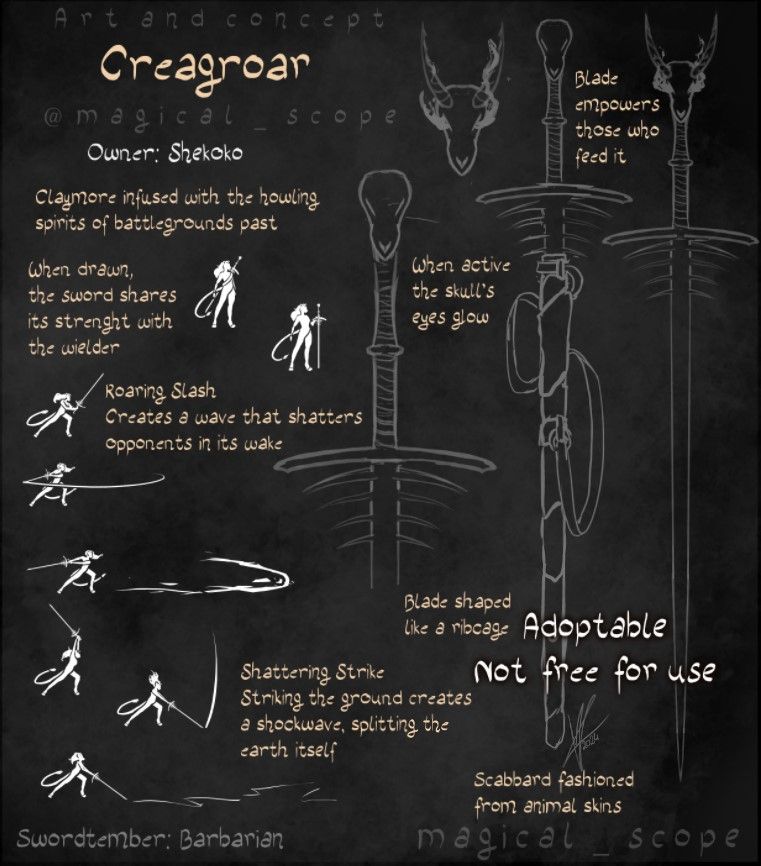 Art and concept
Creagroar
@magical_scope
Owner: Shekoko
Claymore infused with the howling
spirits of battlegrounds past
When drawn,
the sword shares
its strenght with
the wielder
Blade
empowers
those who
feed it
When active
the skull's
eyes glow
Roaring Slash
Creates a wave that shatters
opponents in its wake
Blade shaped
like a ribcage
Adoptable
Not free for use
Shattering Strike
Striking the ground creates
a shockwave, splitting the
earth itself
2024
Scabbard fashioned
from animal skins
Swordtember: Barbarian
magical_scope